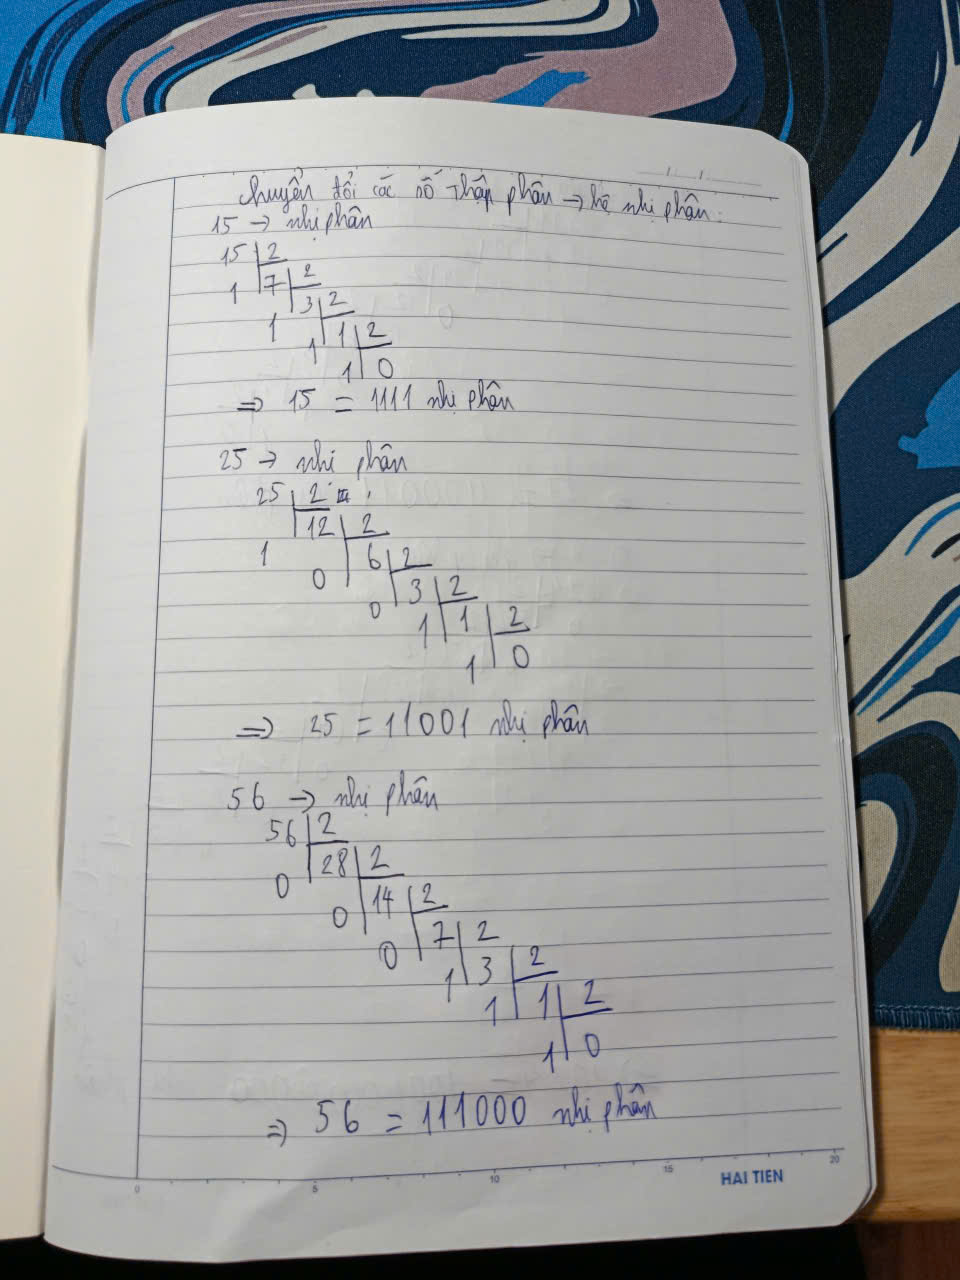 Chuyển đổi các số thập phân → hệ nhị phân:
15 → nhị phân
15 2
1 7 2
1 3 2
1 1 2
1 0
⇒ 15 = 1111 nhị phân
25 → nhị phân
25 2
1 12 2
0 6 2
0 3 2
1 1 2
1 0
⇒ 25 = 11001 nhị phân
56 → nhị phân
56 2
0 28 2
0 14 2
0 7 2
1 3 2
1 1 2
1 0
⇒ 56 = 111000 nhị phân
0 5 10 15 20
HAI TIEN